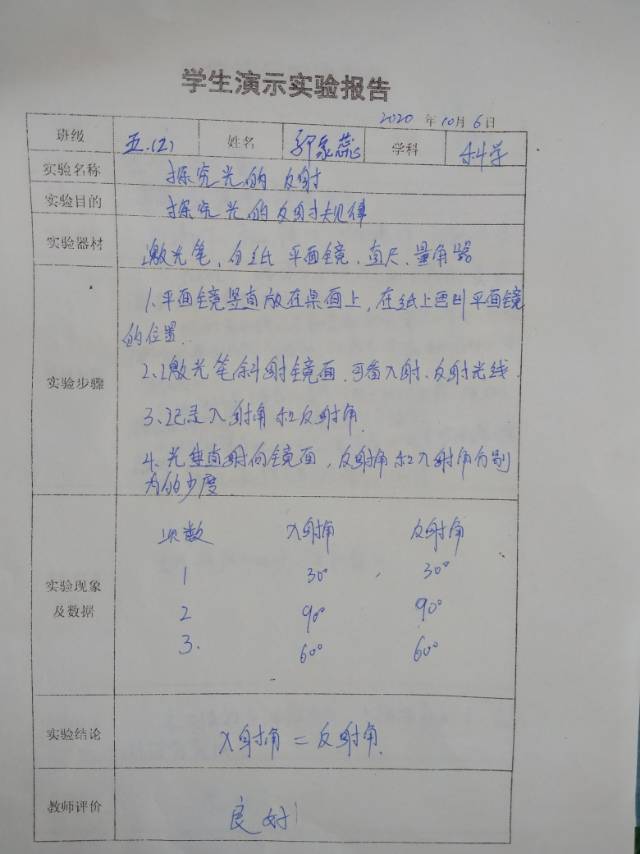 学生演示实验报告
2020 年 10 月 6 日
班级 五.(2) 姓名 郭家蕊 学科 科学
实验名称 探究光的反射
实验目的 探究光的反射规律
实验器材 激光笔、白纸 平面镜、直尺、量角器
1.平面镜竖直放在桌面上,在纸上画出平面镜
的位置.
实验步骤 2.激光笔斜射镜面,可看入射、反射光线.
3.记录入射角和反射角.
4.光垂直射向镜面,反射角和入射角分别
为多少度
次数 入射角 反射角
1 30° 30°
实验现象
及数据
2 90° 90°
3. 60° 60°
实验结论 入射角=反射角.
教师评价 良好